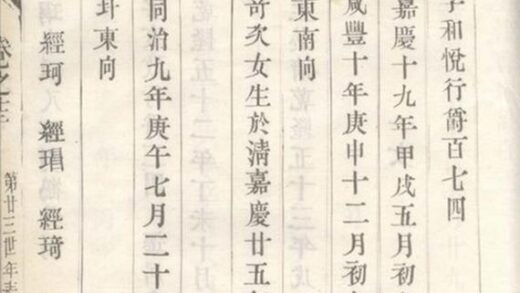 字和悅行爵百七四
嘉慶十九年甲戌五月初
咸豐十年庚申十二月初
東南向
次女生於清嘉慶廿五年
同治九年庚午七月二十
玕東向
經珂 經琩 經琦
卷之
第廿三世年表